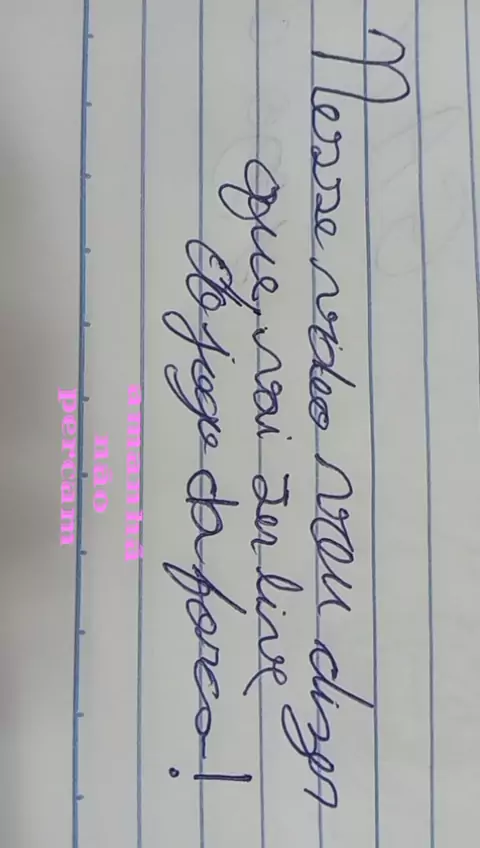 Nesse video vou dizer
que, vai ser live
do jogo da forca!
amanhã
não
percam